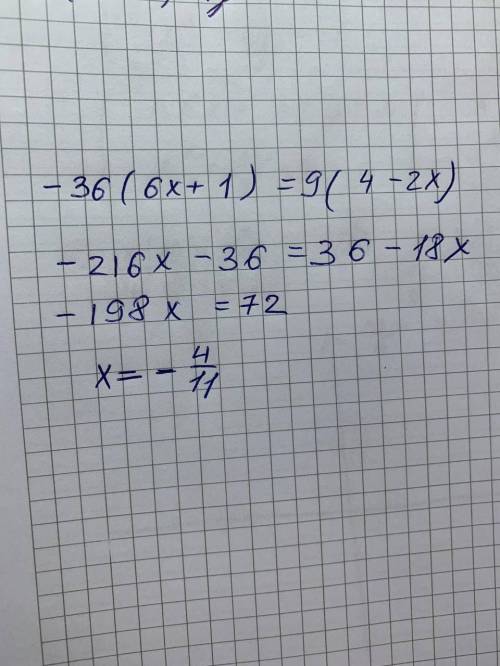 -36(6x+1) =9(4-2x)
-216x -36 =36-18x
-198x =72
x=-4/11